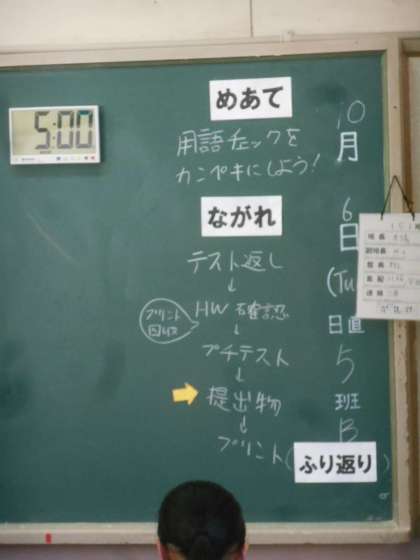 5:00
めあて
用語チェックを
カンペキにしよう!
ながれ
テスト返し
↓
HW確認
プリント
回収
↓
プチテスト
↓
提出物
↓
プリント(
ふり返り
10
月
6
日
(Tu
日直
5
班
B